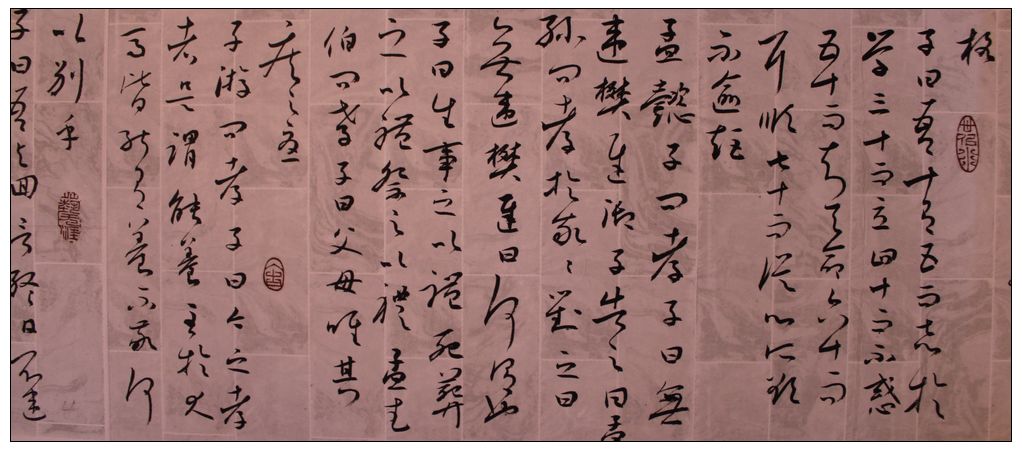 格
子曰吾十有五而志於
學三十而立四十而不惑
五十而知天命六十而
耳順七十而從心所欲
不踰矩
孟懿子問孝子曰無
違樊遲御子告之曰孟
孫問孝於我〻對之曰
無違樊遲曰何謂也
子曰生事之以禮死葬
之以禮祭之以禮孟武
伯問孝子曰父母唯其
疾之憂
子游問孝子曰今之孝
者是謂能養至於犬
馬皆能有養不敬何
以別乎
子曰吾與回言終日不違